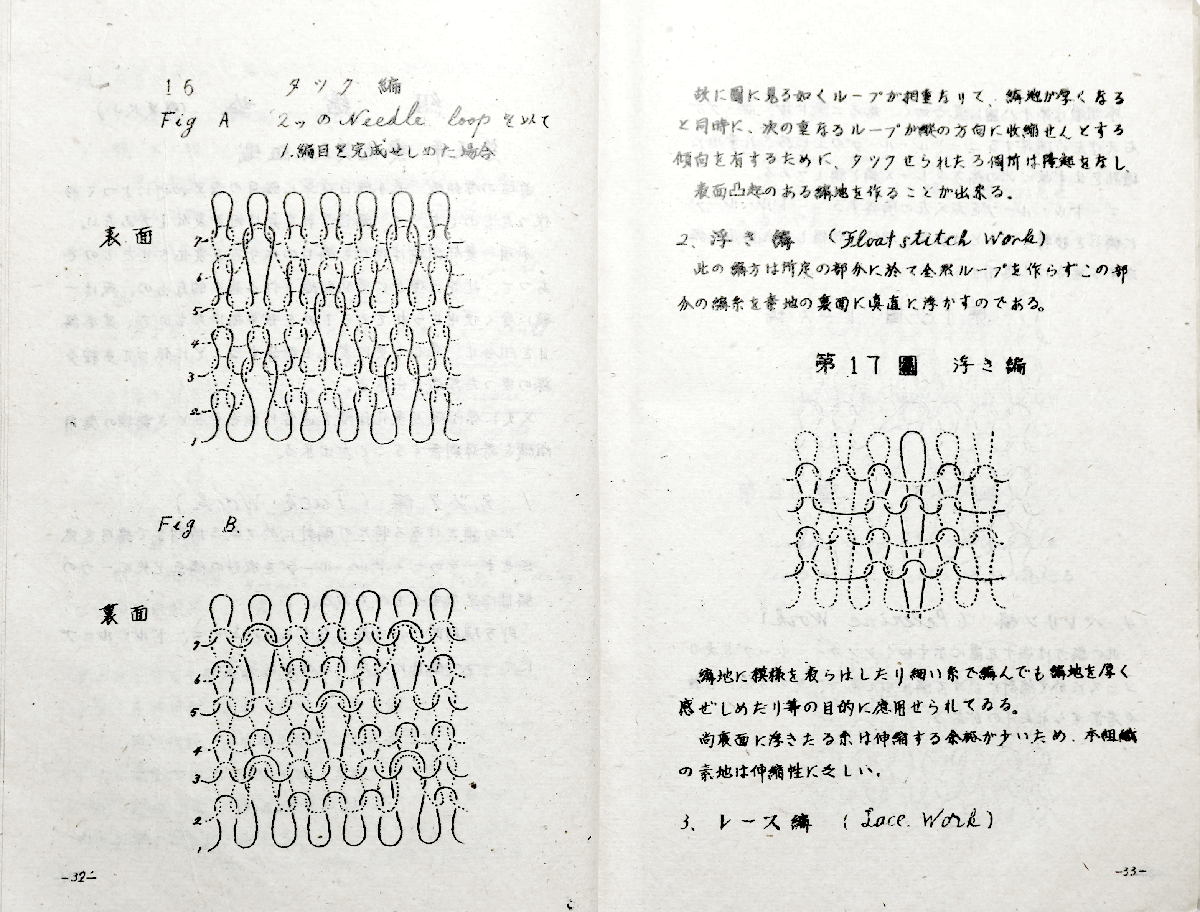 16 タック 編
Fig A 2つのNeedle loopを以て
1.編目を完成せしめた場合
表面
7
6
5
4
3
2
1
Fig B.
裏面
7
6
5
4
3
2
1
-32-
故に圖に見る如くループが相重なりて、編地が厚くなる
と同時に、次の重なるループが縦の方向に收縮せんとする
傾向を有するために、タックせられたる個所は隆起をなし、
表面凸起のある編地を作ることが出来る。
2、浮き編 (Floatstitch Work)
此の編方は所定の部分に於て全然ループを作らずこの部
分の編糸を素地の裏面に真直に浮かすのである。
第17圖 浮き編
編地に模様を表らはしたり細い糸で編んでも編地を厚く
感ぜしめたり等の目的に應用せられてゐる。
尚裏面に浮きたる糸は伸縮する余裕が少いため、本組織
の素地は伸縮性に乏しい。
3、レース編 (Lace. Work)
-33-